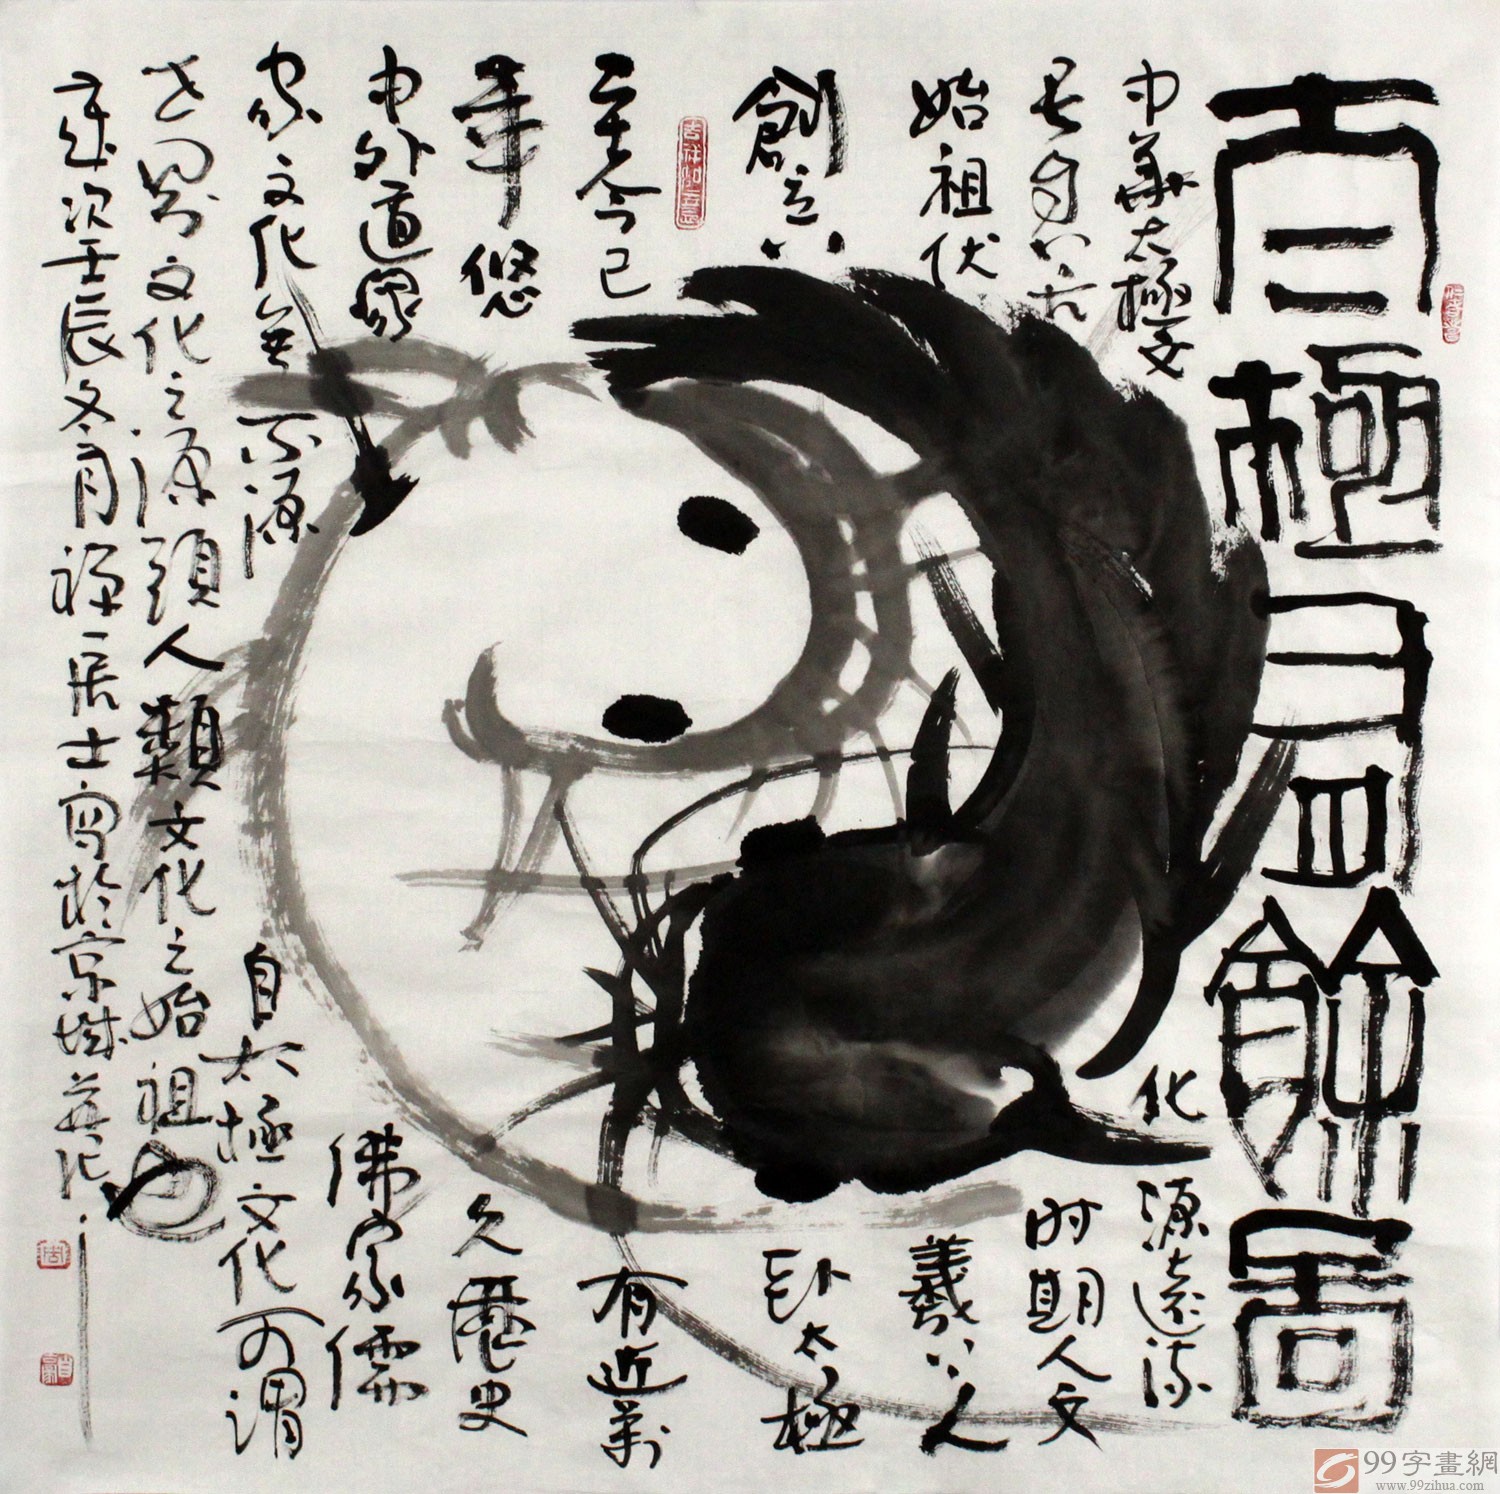 太極有餘圖
中華太極文化源遠流
長自上古时期人文
始祖伏羲
創立八卦太極
至今已有近萬
年悠久歷史
中外道家佛家儒
家文化無不源自太極文化可謂
世界文化之源頭人類文化之始祖也
歲次壬辰冬月禪一居士寫於京城並記
吉祥如意
99字畫網
www.99zihua.com